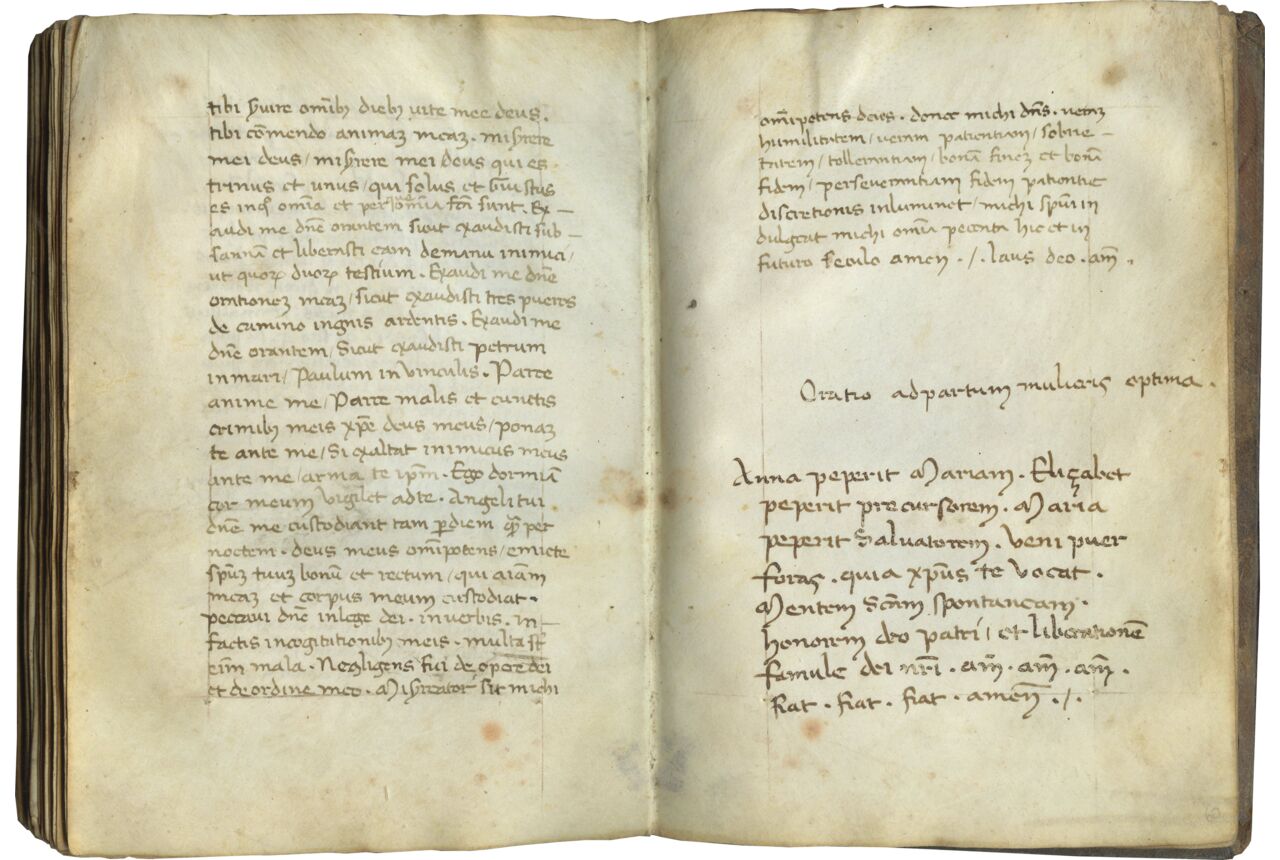 tibi ẜuire om̄ibꝫ diebꝫ uite mee deus.
tibi cōmendo animaꝫ meaꝫ. miẜrere
mei deus / miẜrere mei deus qui es
trinus et unus / qui solus et
es in omīa et per omīa sunt. Ex
audi me dn̄e orantem sicut exaudisti sub
sannā et liberasti eam demanu inimici /
ut quoꝝ duoꝝ testium. Exaudi me dn̄e
orationeꝫ meaꝫ / sicut exaudisti tres pueros
de camino ingnis ardentis. Exaudi me
dn̄e orantem / Sicut exaudisti petrum
in mari / Paulum in vinculis. Parce
anime me / Parce malis et cunctis
crimibꝫ meis xp̄e deus meus / ponaꝫ
te ante me / Si exaltat inimicus meus
ante me / arma te ip̄m. Ego dormiā
cor meum vigilet ad te. Angeli tui
dn̄e me custodiant tam ꝑdiem per
noctem. deus meus om̄ipotens / emicte
sp̄uꝫ tuuꝫ bonū et rectum / qui aīam
meaꝫ et corpus meum custodiat.
peccavi dn̄e in lege dei. in verbis. in
factis in cogitationibꝫ meis. multa st̄
eīm mala. Negligens fui de opere dei
et de ordine meo. Miẜreator sit michi
om̄ipotens deus. donec michi dn̄s. veraꝫ
humilitatem / veram patientiam / sobrie
tatem / tollerantiam / bonā fineꝫ et bonā
fidem / perseverantiam fidem patientie
discretionis inluminet / michi sp̄m in
dulgeat michi omīa peccata hic et in
futuro seculo amen ./. laus deo. am̄.
Oratio ad partum mulieris optima.
Anna peperit Mariam. Eliçabet
peperit precursorem. Maria
peperit Salvatorem. Veni puer
foras. quia xp̄us te vocat.
Mentem Sc̄am spontaneam.
honorem deo patri / et liberationē
famule dei nr̄i. am̄. am̄. am̄.
fiat. fiat. fiat. amen̄ ./.